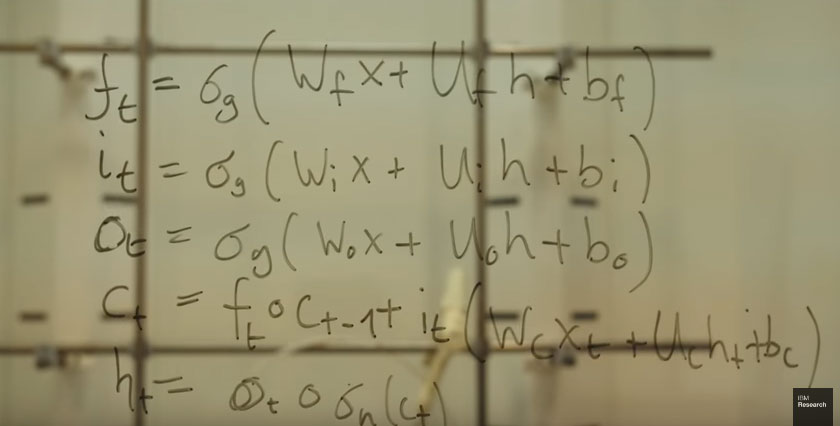 f_t = σ_g(W_f x + U_f h + b_f)
i_t = σ_g(W_i x + U_i h + b_i)
o_t = σ_g(W_o x + U_o h + b_o)
c_t = f_t ∘ c_{t-1} + i_t (W_c x_t + U_c h_t + b_c)
h_t = o_t ∘ σ_h(c_t)
IBM
Research